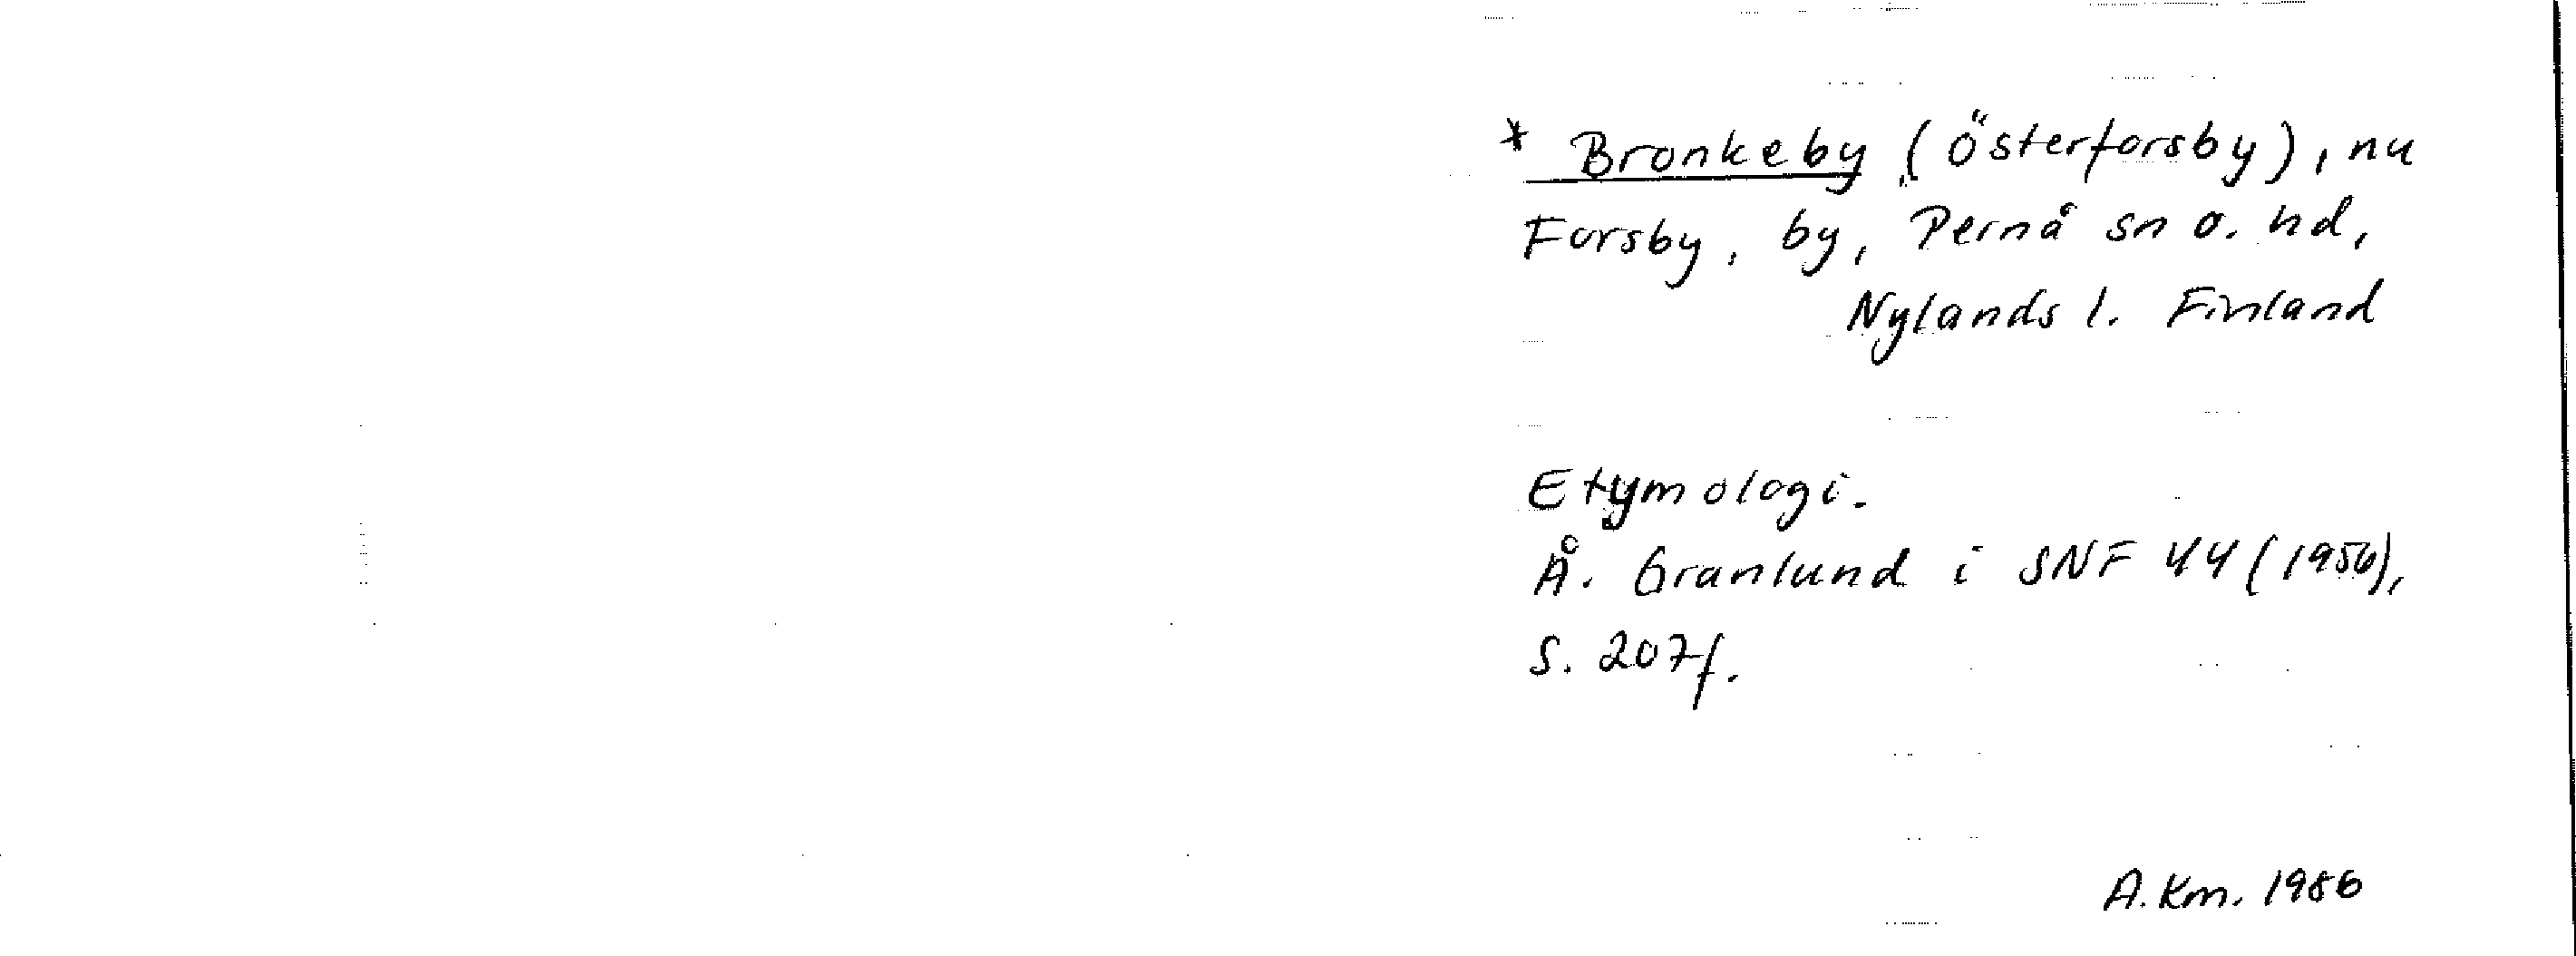 * Bronkeby (Österforsby), nu
Forsby, by, Pernå sn o. hd,
Nylands l. Finland
Etymologi.
Å. Granlund i SNF 44 (1956),
S. 207f.
A. Km. 1986